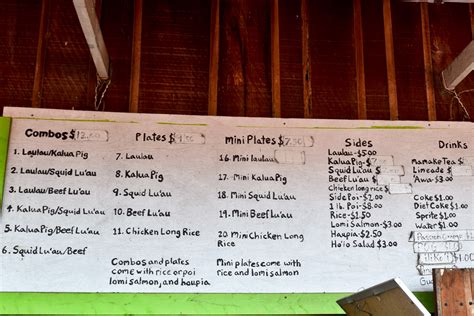 Combos $12.00
1. Laulau/Kalua Pig
2. Laulau/Squid Lu'au
3. Laulau/Beef Lu'au
4. Kalua Pig/Squid Lu'au
5. Kalua Pig/Beef Lu'au
6. Squid Lu'au/Beef
Plates $
7. Laulau
8. Kalua Pig
9. Squid Lu'au
10. Beef Lu'au
11. Chicken Long Rice
Combos and plates
come with rice or poi
lomi salmon, and haupia
Mini Plates $7.50
16 Mini laulau
17 Mini Kalua Pig
18 Mini Squid Lu'au
19 Mini Beef Lu'au
20 Mini Chicken Long
Rice
Mini plates come with
rice and lomi salmon
Sides
Laulau-$5.00
Kalua Pig-
Squid Lu'au
Beef Lu'au
Chicken long rice
Side Poi-$2.00
1 lb. Poi-$8.00
Rice-$1.50
Lomi Salmon-$3.00
Haupia-$2.50
Ho'io Salad $3.00
Drinks
Mamake Tea
Limeade
'Awa-$3.00
Coke $1.00
Diet Coke $1.00
Sprite $1.00
Water